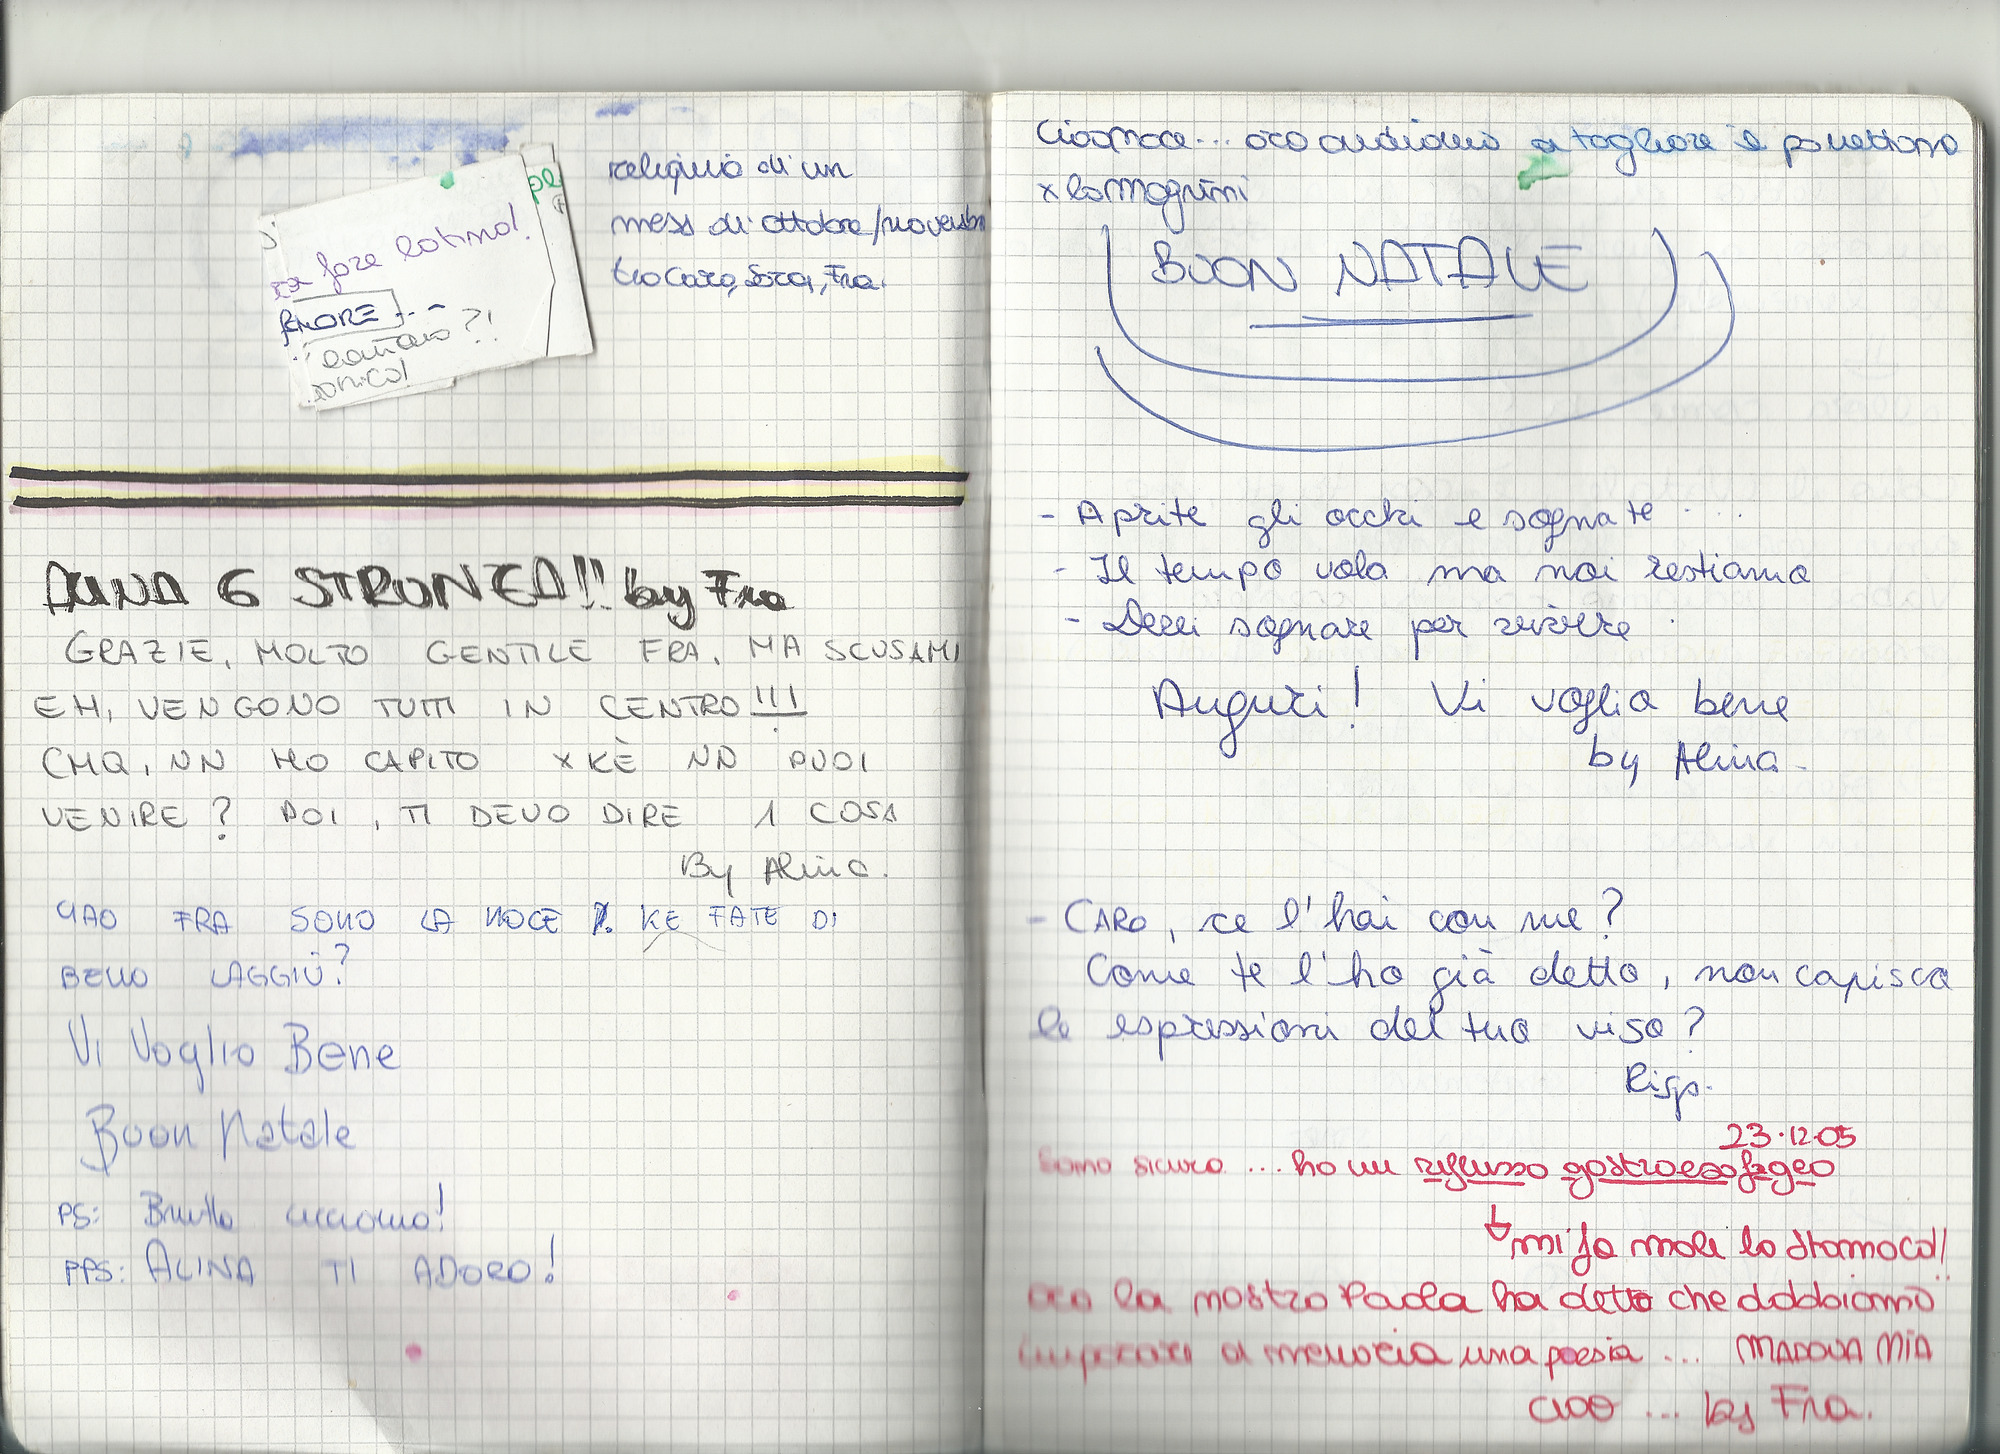 per fare latino!
AMORE...
?!
reliquia di un
mess di ottobre/novembre
tra Caro, Sara, Fra.
ALINA 6 STRONZA!! by Fra
GRAZIE, MOLTO GENTILE FRA, MA SCUSAMI
EH, VENGONO TUTTI IN CENTRO!!!
CMQ, NN HO CAPITO XKÈ NN PUOI
VENIRE? POI, TI DEVO DIRE 1 COSA
By Alina.
CIAO FRA SONO LA NOCE KE FATE DI
BELLO LAGGIÙ?
Vi Voglio Bene
Buon Natale
PS: Brutto !
PPS: ALINA TI ADORO!
Ciaomare... ora andiamo a tagliare il panettone
x la Magrini
BUON NATALE
- Aprite gli occhi e sognate ....
- Il tempo vola ma noi restiamo
- Devi sognare per vivere .
Auguri! Vi voglio bene
by Alina-
- CARO, ce l'hai con me?
Come te l'ho già detto, non capisco
le espressioni del tuo viso?
Risp.
23.12.05
Sono sicura ... ho un reflusso gastroesofageo
↳ mi fa male lo stomaco!!
ora la nostra Paola ha detto che dobbiamo
imparare a memoria una poesia ... MADONNA MIA
ciao ... by Fra.